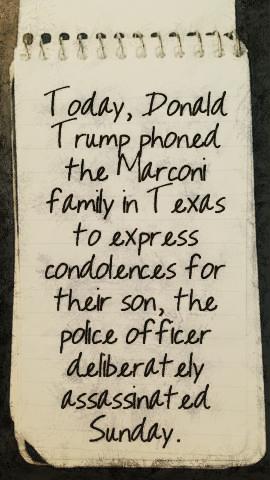 Today, Donald
Trump phoned
the Marconi
family in Texas
to express
condolences for
their son, the
police officer
deliberately
assassinated
Sunday.